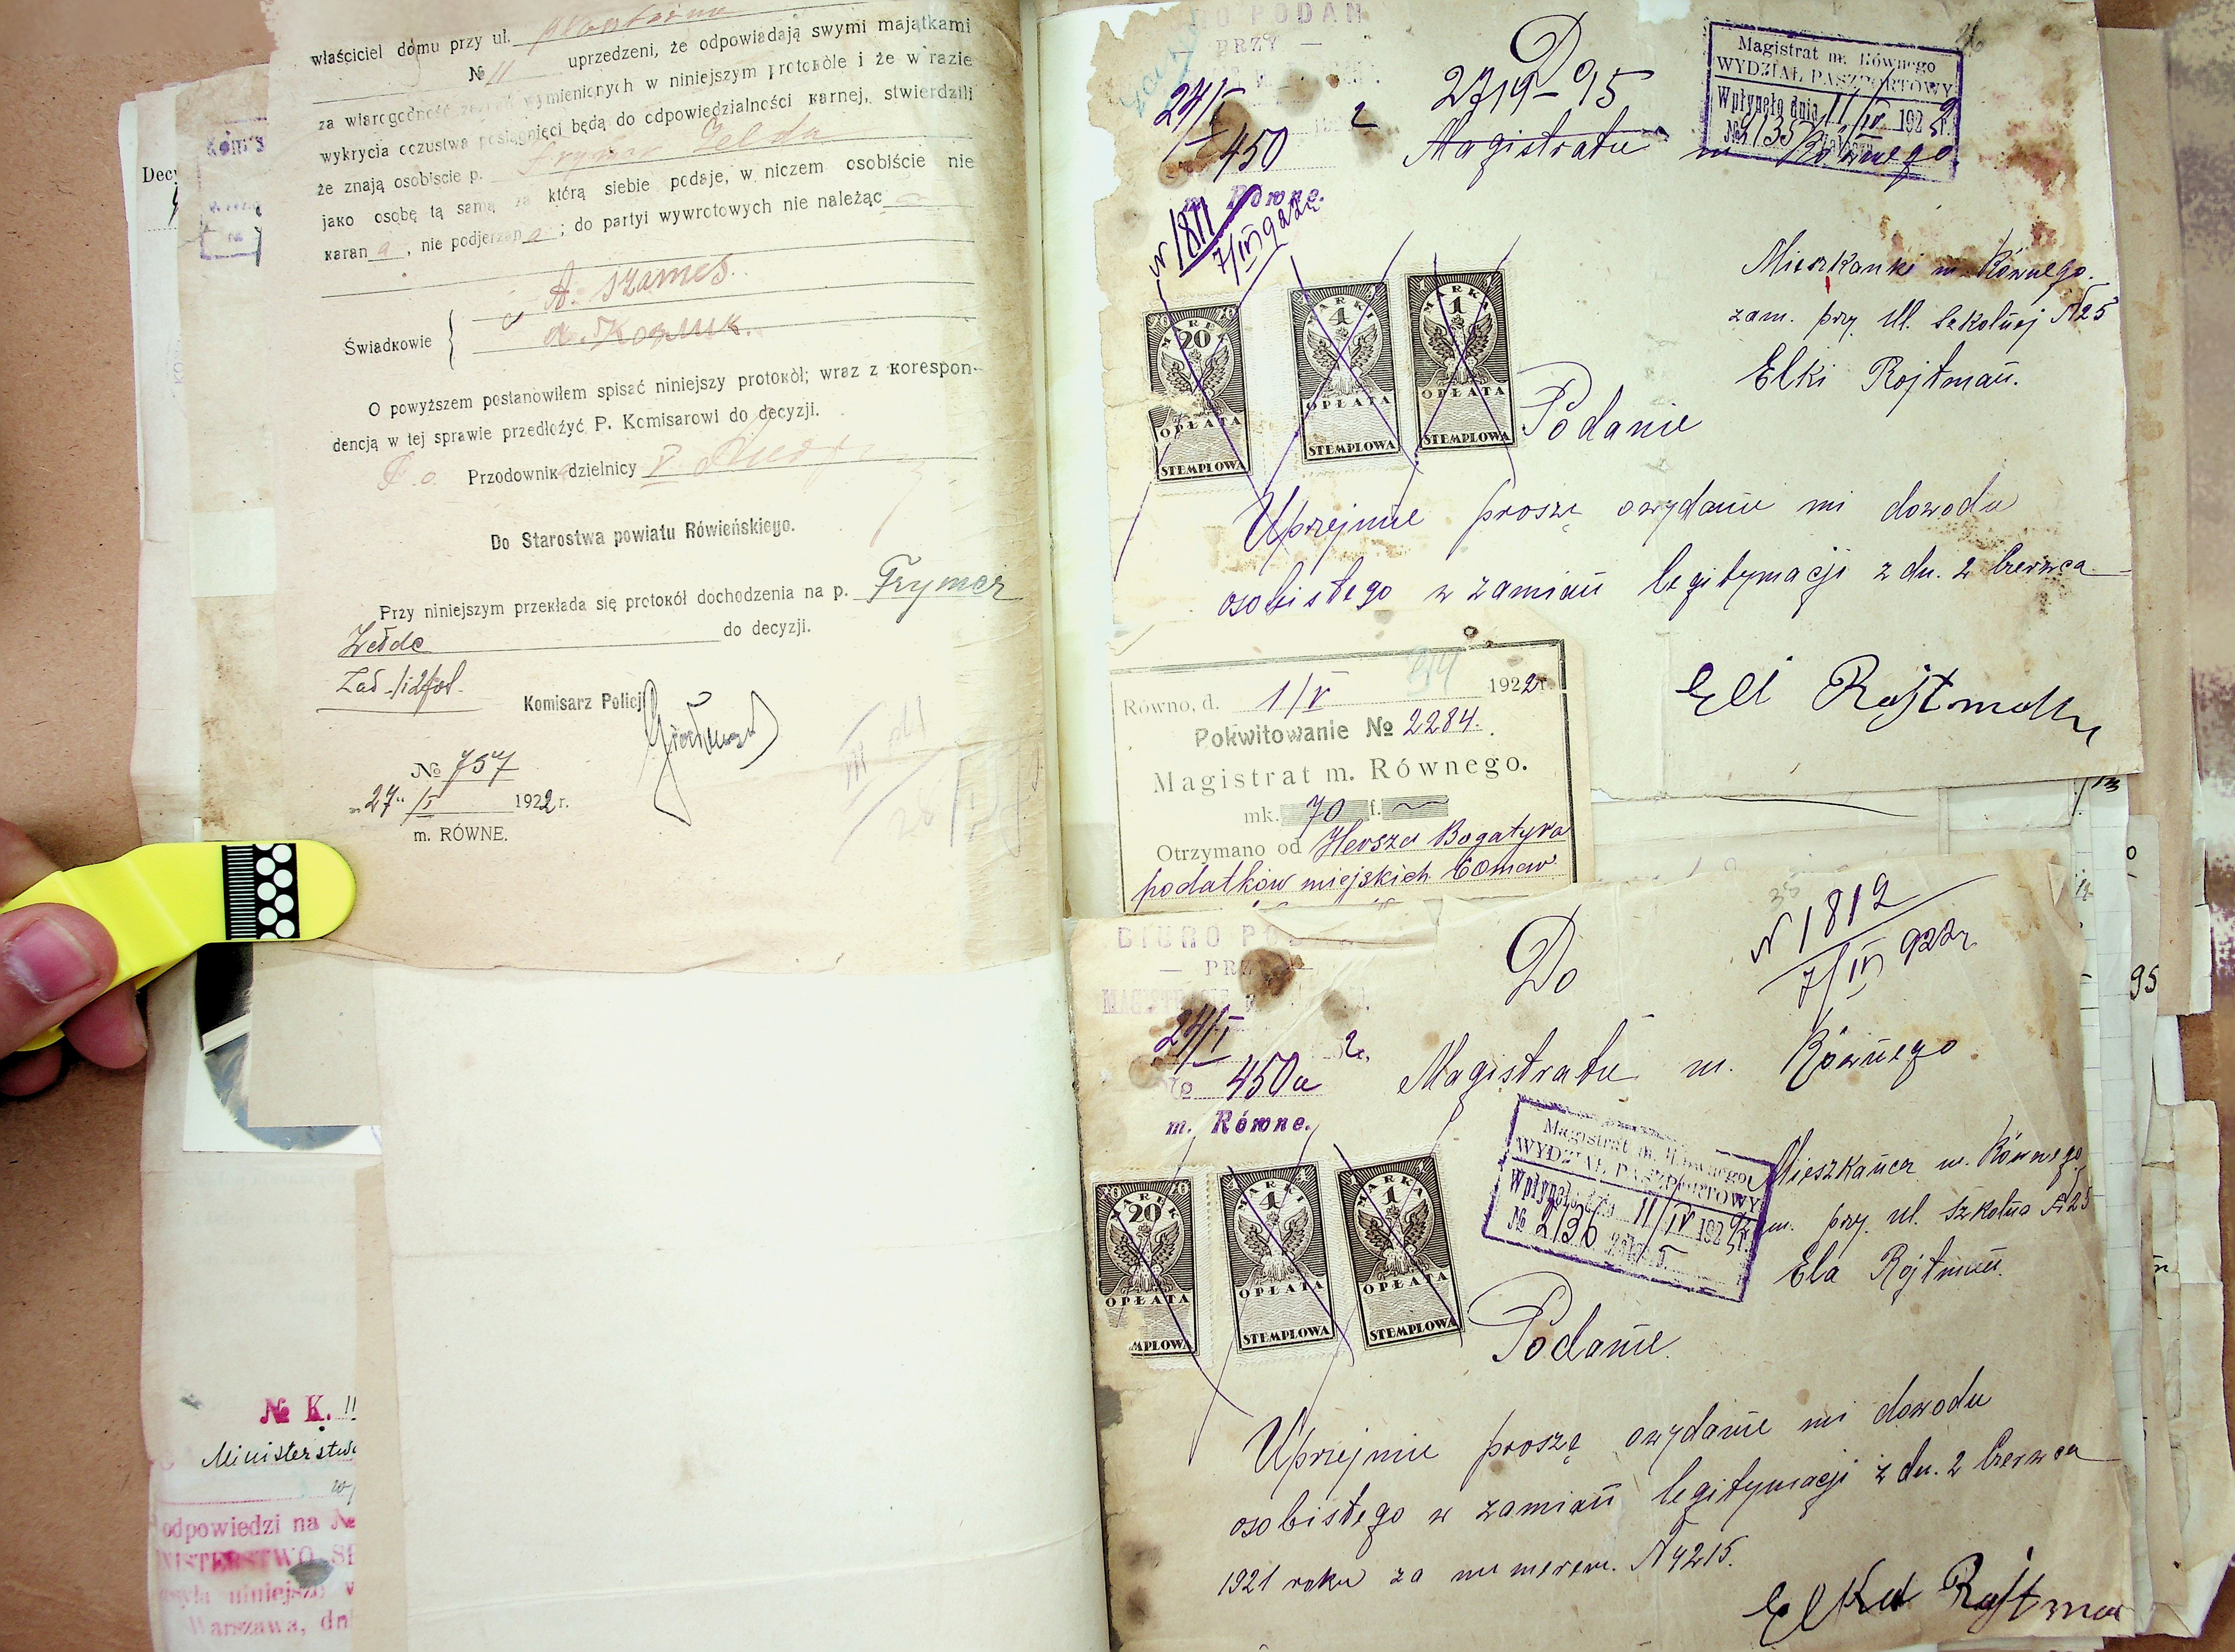 właściciel domu przy ul.
№ 11 uprzedzeni, że odpowiadają swymi majątkami
za wiarogodność wymienionych w niniejszym protokóle i że w razie
wykrycia oczustwa posiągnięci będą do odpowiedzialności karnej, stwierdzili
że znają osobiscie p. Frymer Zelda
jako osobę tą samą za którą siebie podaje, w niczem osobiście nie
karan a, nie podjerzan a; do partyi wywrotowych nie należąc
A. Szames.
Świadkowie
O powyższem postanowiłem spisać niniejszy protokół; wraz z korespon-
dencją w tej sprawie przedłożyć P. Komisarowi do decyzji.
P. o. Przodownik dzielnicy V
Do Starostwa powiatu Rówieńskiego.
Przy niniejszym przekłada się protokół dochodzenia na p. Frymer
Zelde do decyzji.
Komisarz Policji
№ 757
„27" /I 1922 r.
m. RÓWNE.
Decy
№ K. 11
Ministerstw
odpowiedzi na №
Warszawa, dn
PODAN
PRZY —
24/I 2
450
m. Równe.
N 1811
7/IV 922r
Do
2719-95
Magistratu m. Równego
Magistrat m. Równego
WYDZIAŁ PASZPORTOWY
Wpłynęło dnia 11/IV 192
№ 2135
Mieszkanki m. Równego.
zam. przy ul. Szkolnej N25
Elki Rojtman.
MAREK
20
OPŁATA
STEMPLOWA
MARKI
4
OPŁATA
STEMPLOWA
MARKA
1
OPŁATA
STEMPLOWA
Podanie
Uprzejmie proszę o wydanie mi dowodu
osobistego w zamian legitymacji z dn. 2 Czerwca
Eli Rojtman
Równo, d. 1/V 1922 r.
Pokwitowanie № 2284.
Magistrat m. Równego.
mk. 70 f.
Otrzymano od Hersza Bogatyra
podatków miejskich
BIURO PO
— PRZY —
24/I 2
№ 450a
m. Równe.
Do
N 1812
7/IV 922r
Magistratu m. Równego
Magistrat m. Równego
WYDZIAŁ PASZPORTOWY
Wpłynęło dnia 11/IV 192
№ 2136
Mieszkańca m. Równego
zam. przy ul. Szkolna N25
Ela Rojtman.
MAREK
20
OPŁATA
MPLOWA
MARKI
4
OPŁATA
STEMPLOWA
MARKA
1
OPŁATA
STEMPLOWA
Podanie
Uprzejmie proszę o wydanie mi dowodu
osobistego w zamian legitymacji z dn. 2 Czerwca
1921 roku za numerem. N4215.
Elka Rojtman
95